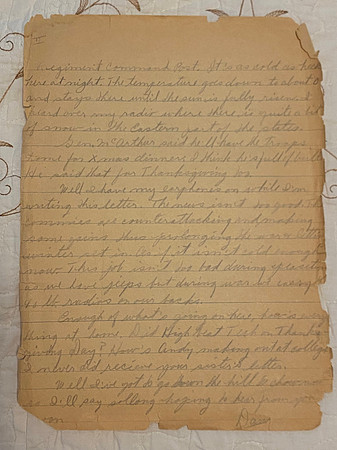 regiment Command Post. It is as cold as heck
here at night. The temperature goes down to about 0
and stays there until the sun is fully risen. I
heard over my radio where there is quite a bit
of snow in the Eastern part of the states.
Gen. McArthur said he'll have the troops
home for Xmas dinner. I think he's full of bull.
He said that for Thanksgiving too.
Well I have my earphones on while I'm
writing this letter. The news isn't too good. The
Commies are counterattacking and making
some gains thus prolonging the war.
winter set in as if it isn't cold enough
now. This job isn't too bad during
as we have jeeps but during war we
the radios on our backs.
Enough of what's going on here, how's every
thing at home. Did High beat Tech on Thanks-
giving Day? How's Andy making out at college
I never did recieve your sister's letter.
Well I've got to go down the hill to chow now
so I'll say so long hoping to hear from you
soon.